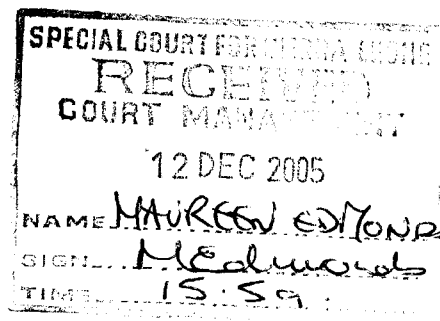 SPECIAL COURT FOR SIERRA LEONE
RECEIVED
COURT MANAGEMENT
12 DEC 2005
NAME MAUREEN EDMONDS
SIGN MEdmonds
TIME 15.59.